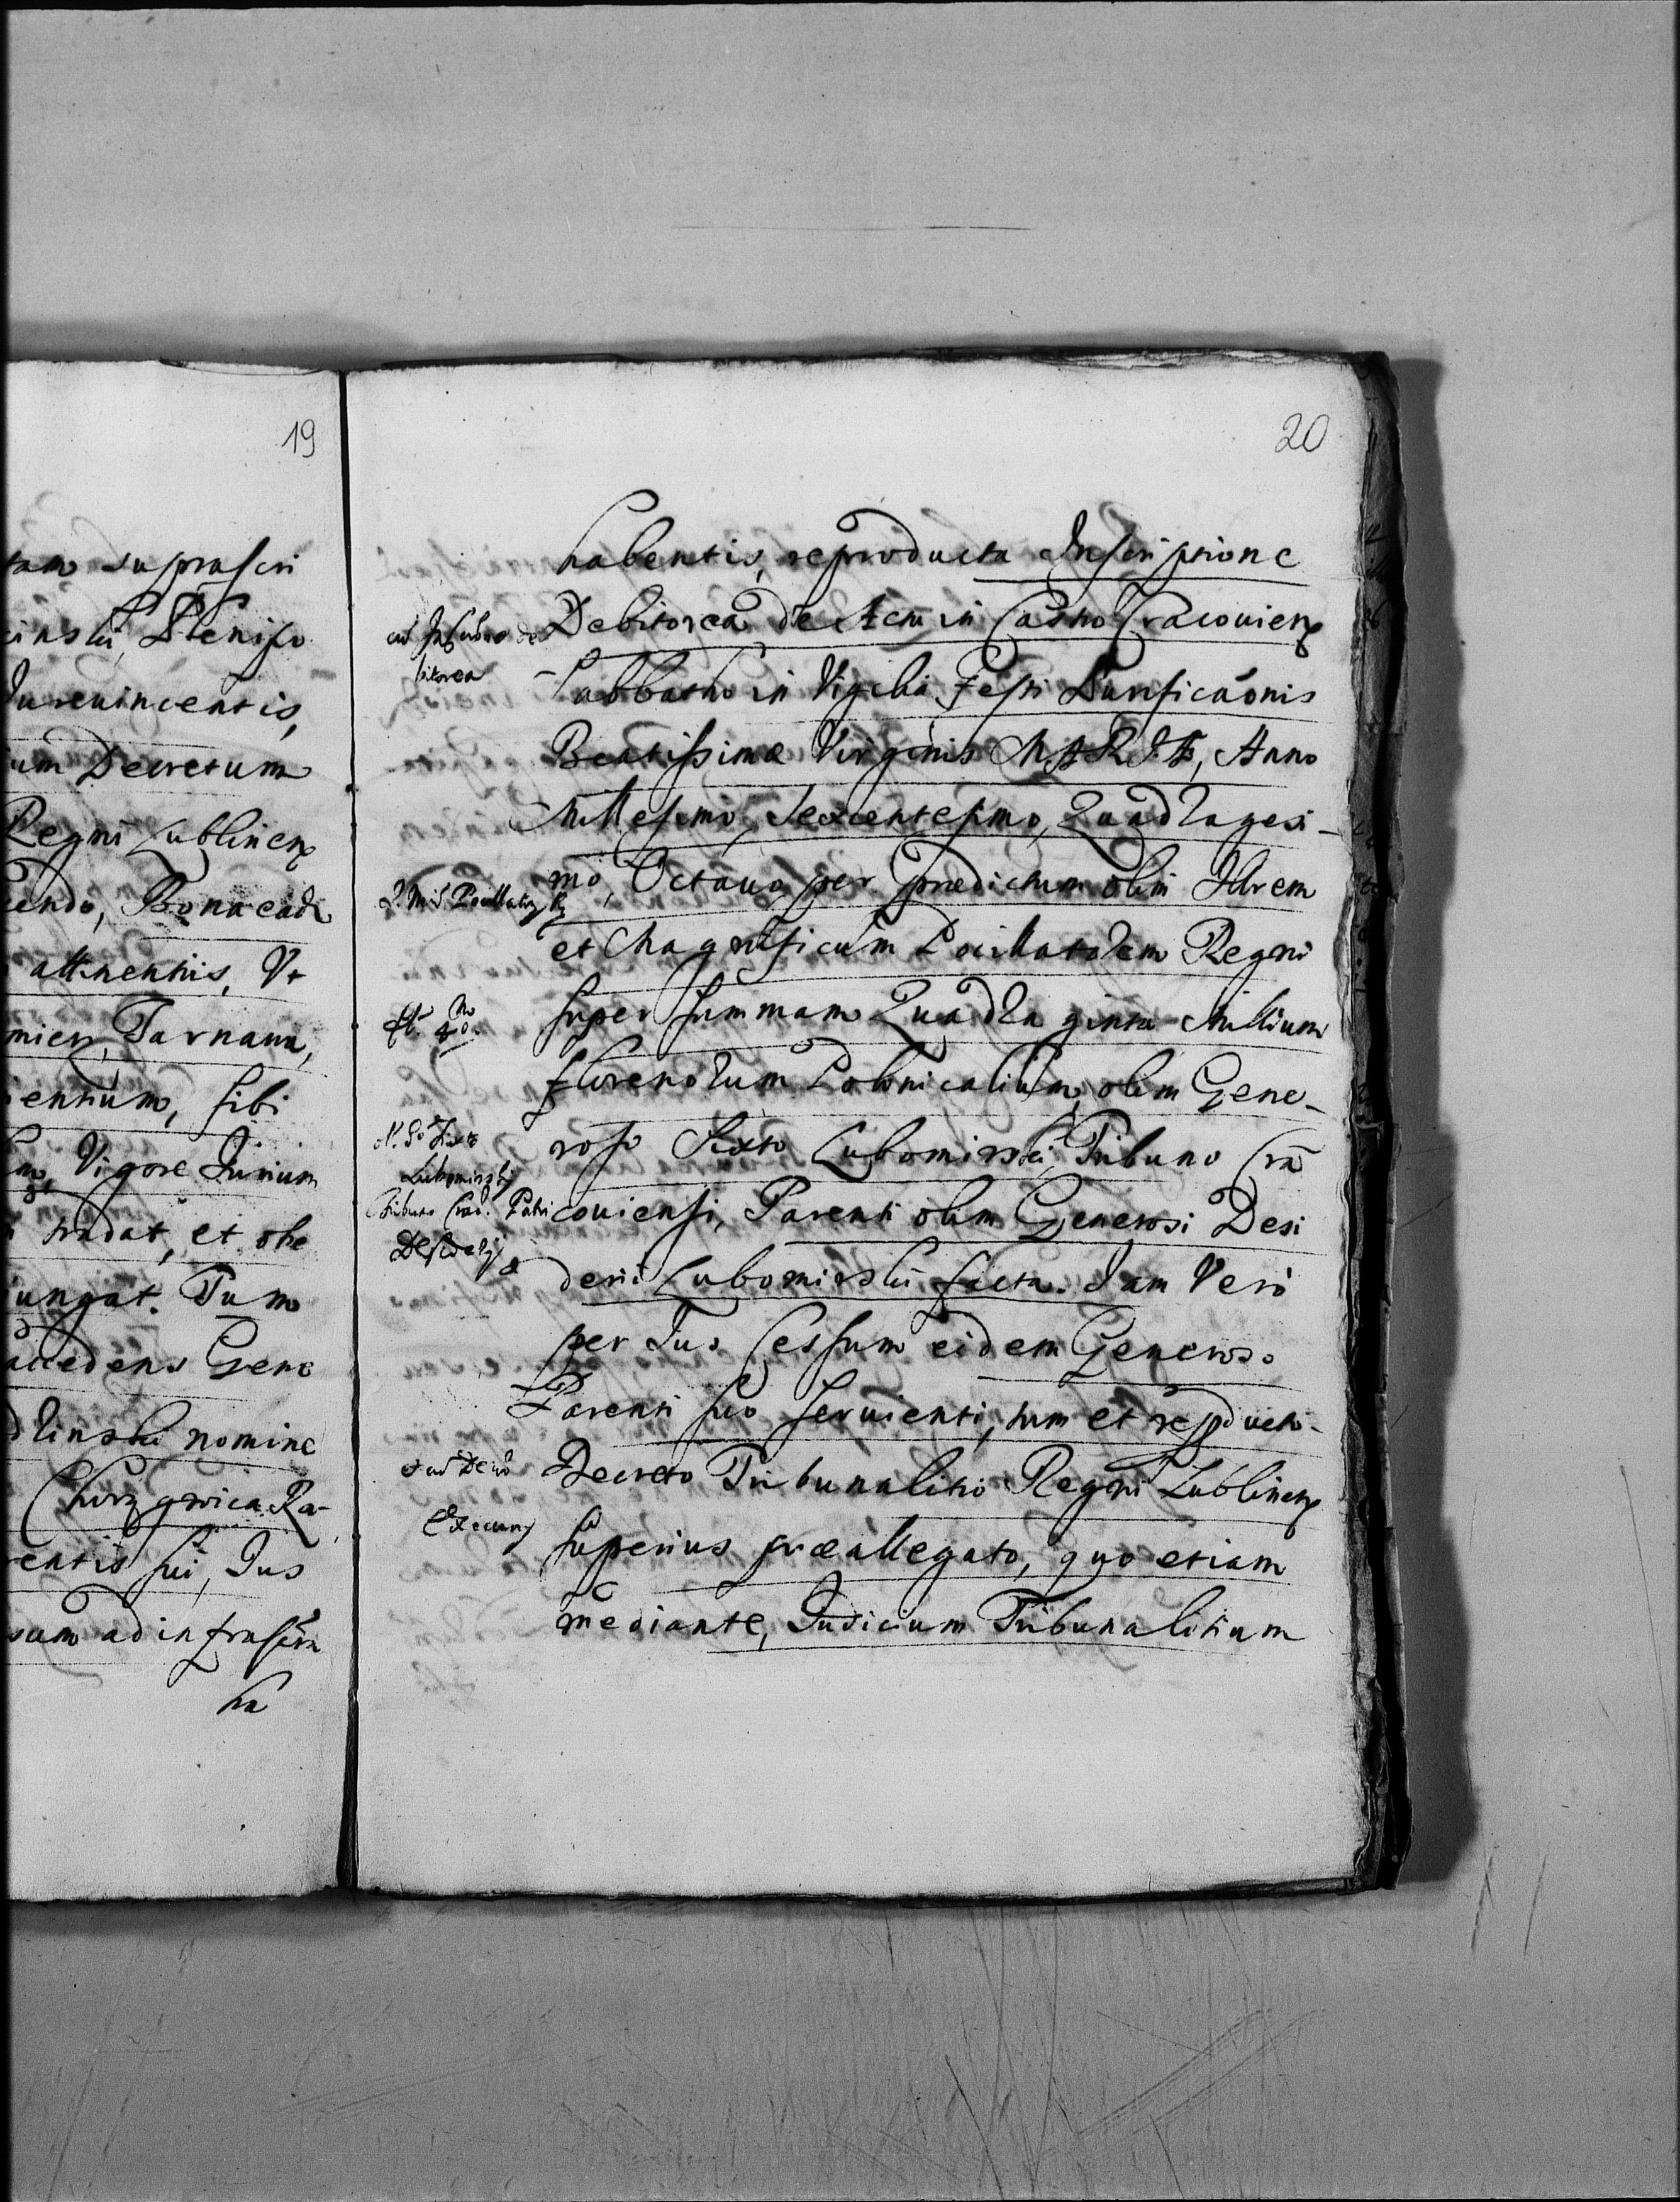 19
tam suprascri
inskii, Plenipo
Jurevincentis,
um Decretum
Regni Lublinen
cendo, Bona eadē
attinentiis, Vt
miers, Tarnawa,
ientium, sibi
Vigore Jurium
tradat, et obe
iungat. Tum
accedens Gene
dlinskii nomine
Ra-
entis sui, Jus
sum ad infrascrā
ha
20
habentis, reproducta Inscriptione
Debitorea de Actu in Castro Cracouien
Sabbatho in Vigilia Festi Purificāonis
Beatissimæ Virginis MARIÆ, Anno
Millesimo, Sexcentesimo, Quadragesi-
mo, Octauo, per prædictum olim Illrem
et Magnificum Pocillatorem Regni
super summam Quadraginta Millium
florenorum Polonicalium, olim Gene-
roso Sixto Lubomirskii, Tribuno Cra
couiensi, Parenti olim Generosi Desi
derii Lubomirskii facta. Jam Vero
per Jus Cessum eidem Generoso
Parenti suo seruienti, tum et repducto
Decreto Tribunalitio Regni Lublinen
superius præallegato, quo etiam
mediante, Judicium Tribunalitium
de
bitorea
fl. 40
Sixto
Lubomirskii
Tribuno Crac. Patri
Desiderii